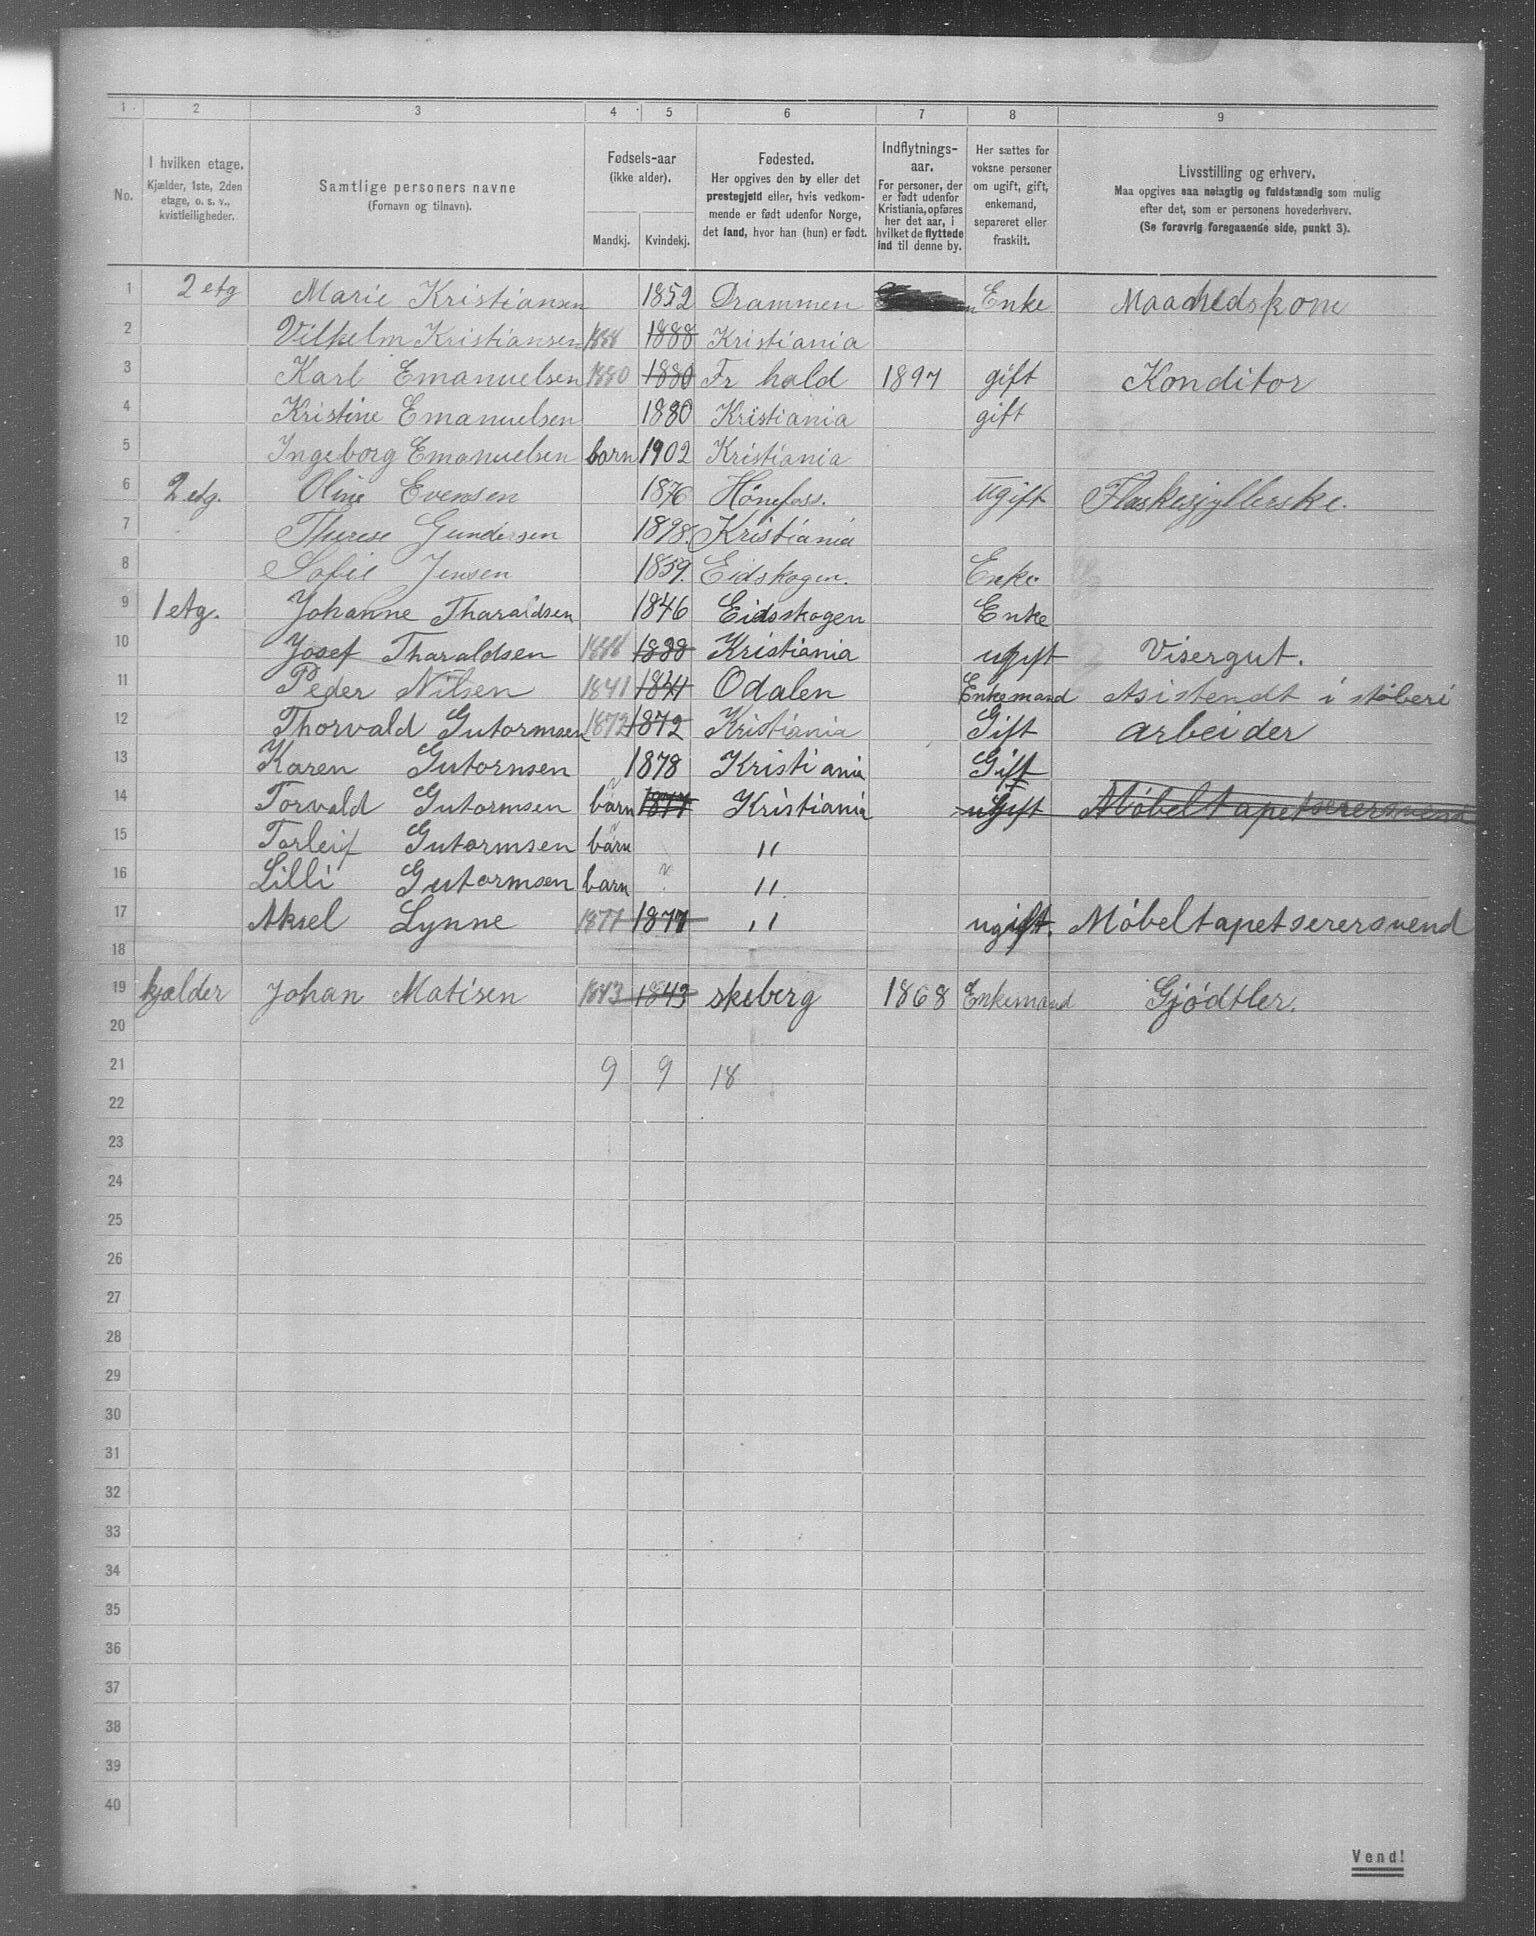 1 2 3 4 5 6 7 8 9
No.
I hvilken etage.
Kjælder, 1ste, 2den
etage, o. s. v.,
kvistleiligheder.
Samtlige personers navne
(Fornavn og tilnavn).
Fødsels-aar
(ikke alder).
Mandkj. Kvindekj.
Fødested.
Her opgives den by eller det
prestegjeld eller, hvis vedkom-
mende er født udenfor Norge,
det land, hvor han (hun) er født.
Indflytnings-
aar.
For personer, der
er født udenfor
Kristiania, opføres
her det aar, i
hvilket de flyttede
ind til denne by.
Her sættes for
voksne personer
om ugift, gift,
enkemand,
separeret eller
fraskilt.
Livsstilling og erhverv.
Maa opgives saa nøiagtig og fuldstændig som mulig
efter det, som er personens hovederhverv.
(Se forøvrig foregaaende side, punkt 3).
1 2 etg Marie Kristiansen 1852 Drammen Enke
2 Vilhelm Kristiansen 1888 1888 Kristiania
3 Karl Emanuelsen 1880 1880 Fr hald 1897 gift Konditor
4 Kristine Emanuelsen 1880 Kristiania gift
5 Ingeborg Emanuelsen barn 1902 Kristiania
6 2 etg. Oline Evensen 1876 Hønefoss. ugift Flaskesjyllerske.
7 Therese Gundersen 1898. Kristiania
8 Sofie Jensen 1859. Eidskogen. Enke
9 1 etg. Johanne Tharaldsen 1846 Eidsskogen Enke
10 Josef Tharaldsen 1888 1888 Kristiania ugift Visergut.
11 Peder Nilsen 1841 1841 Odalen Enkemand Asistendt i støberi
12 Thorvald Gutormsen 1872 1872 Kristiania Gift arbeider
13 Karen Gutormsen 1878 Kristiania Gift
14 Torvald Gutormsen barn 1877 Kristiania ugift Møbeltapetserersvend
15 Torleif Gutormsen barn "
16 Lilli Gutormsen barn "
17 Aksel Lynne 1877 1877 " ugift. Møbeltapetserersvend
18
19 kjælder Johan Matisen 1843 1843 skeberg 1868 Enkemand Gjødtler.
20
21 9 9 18
22
23
24
25
26
27
28
29
30
31
32
33
34
35
36
37
38
39
40
Vend!